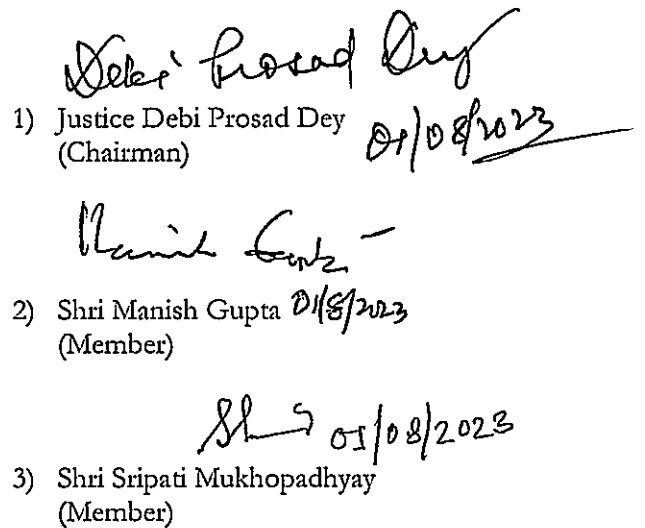 Debi Prosad Dey
1) Justice Debi Prosad Dey
(Chairman)
01/08/2023
Manish Gupta
2) Shri Manish Gupta 01/8/2023
(Member)
01/08/2023
3) Shri Sripati Mukhopadhyay
(Member)